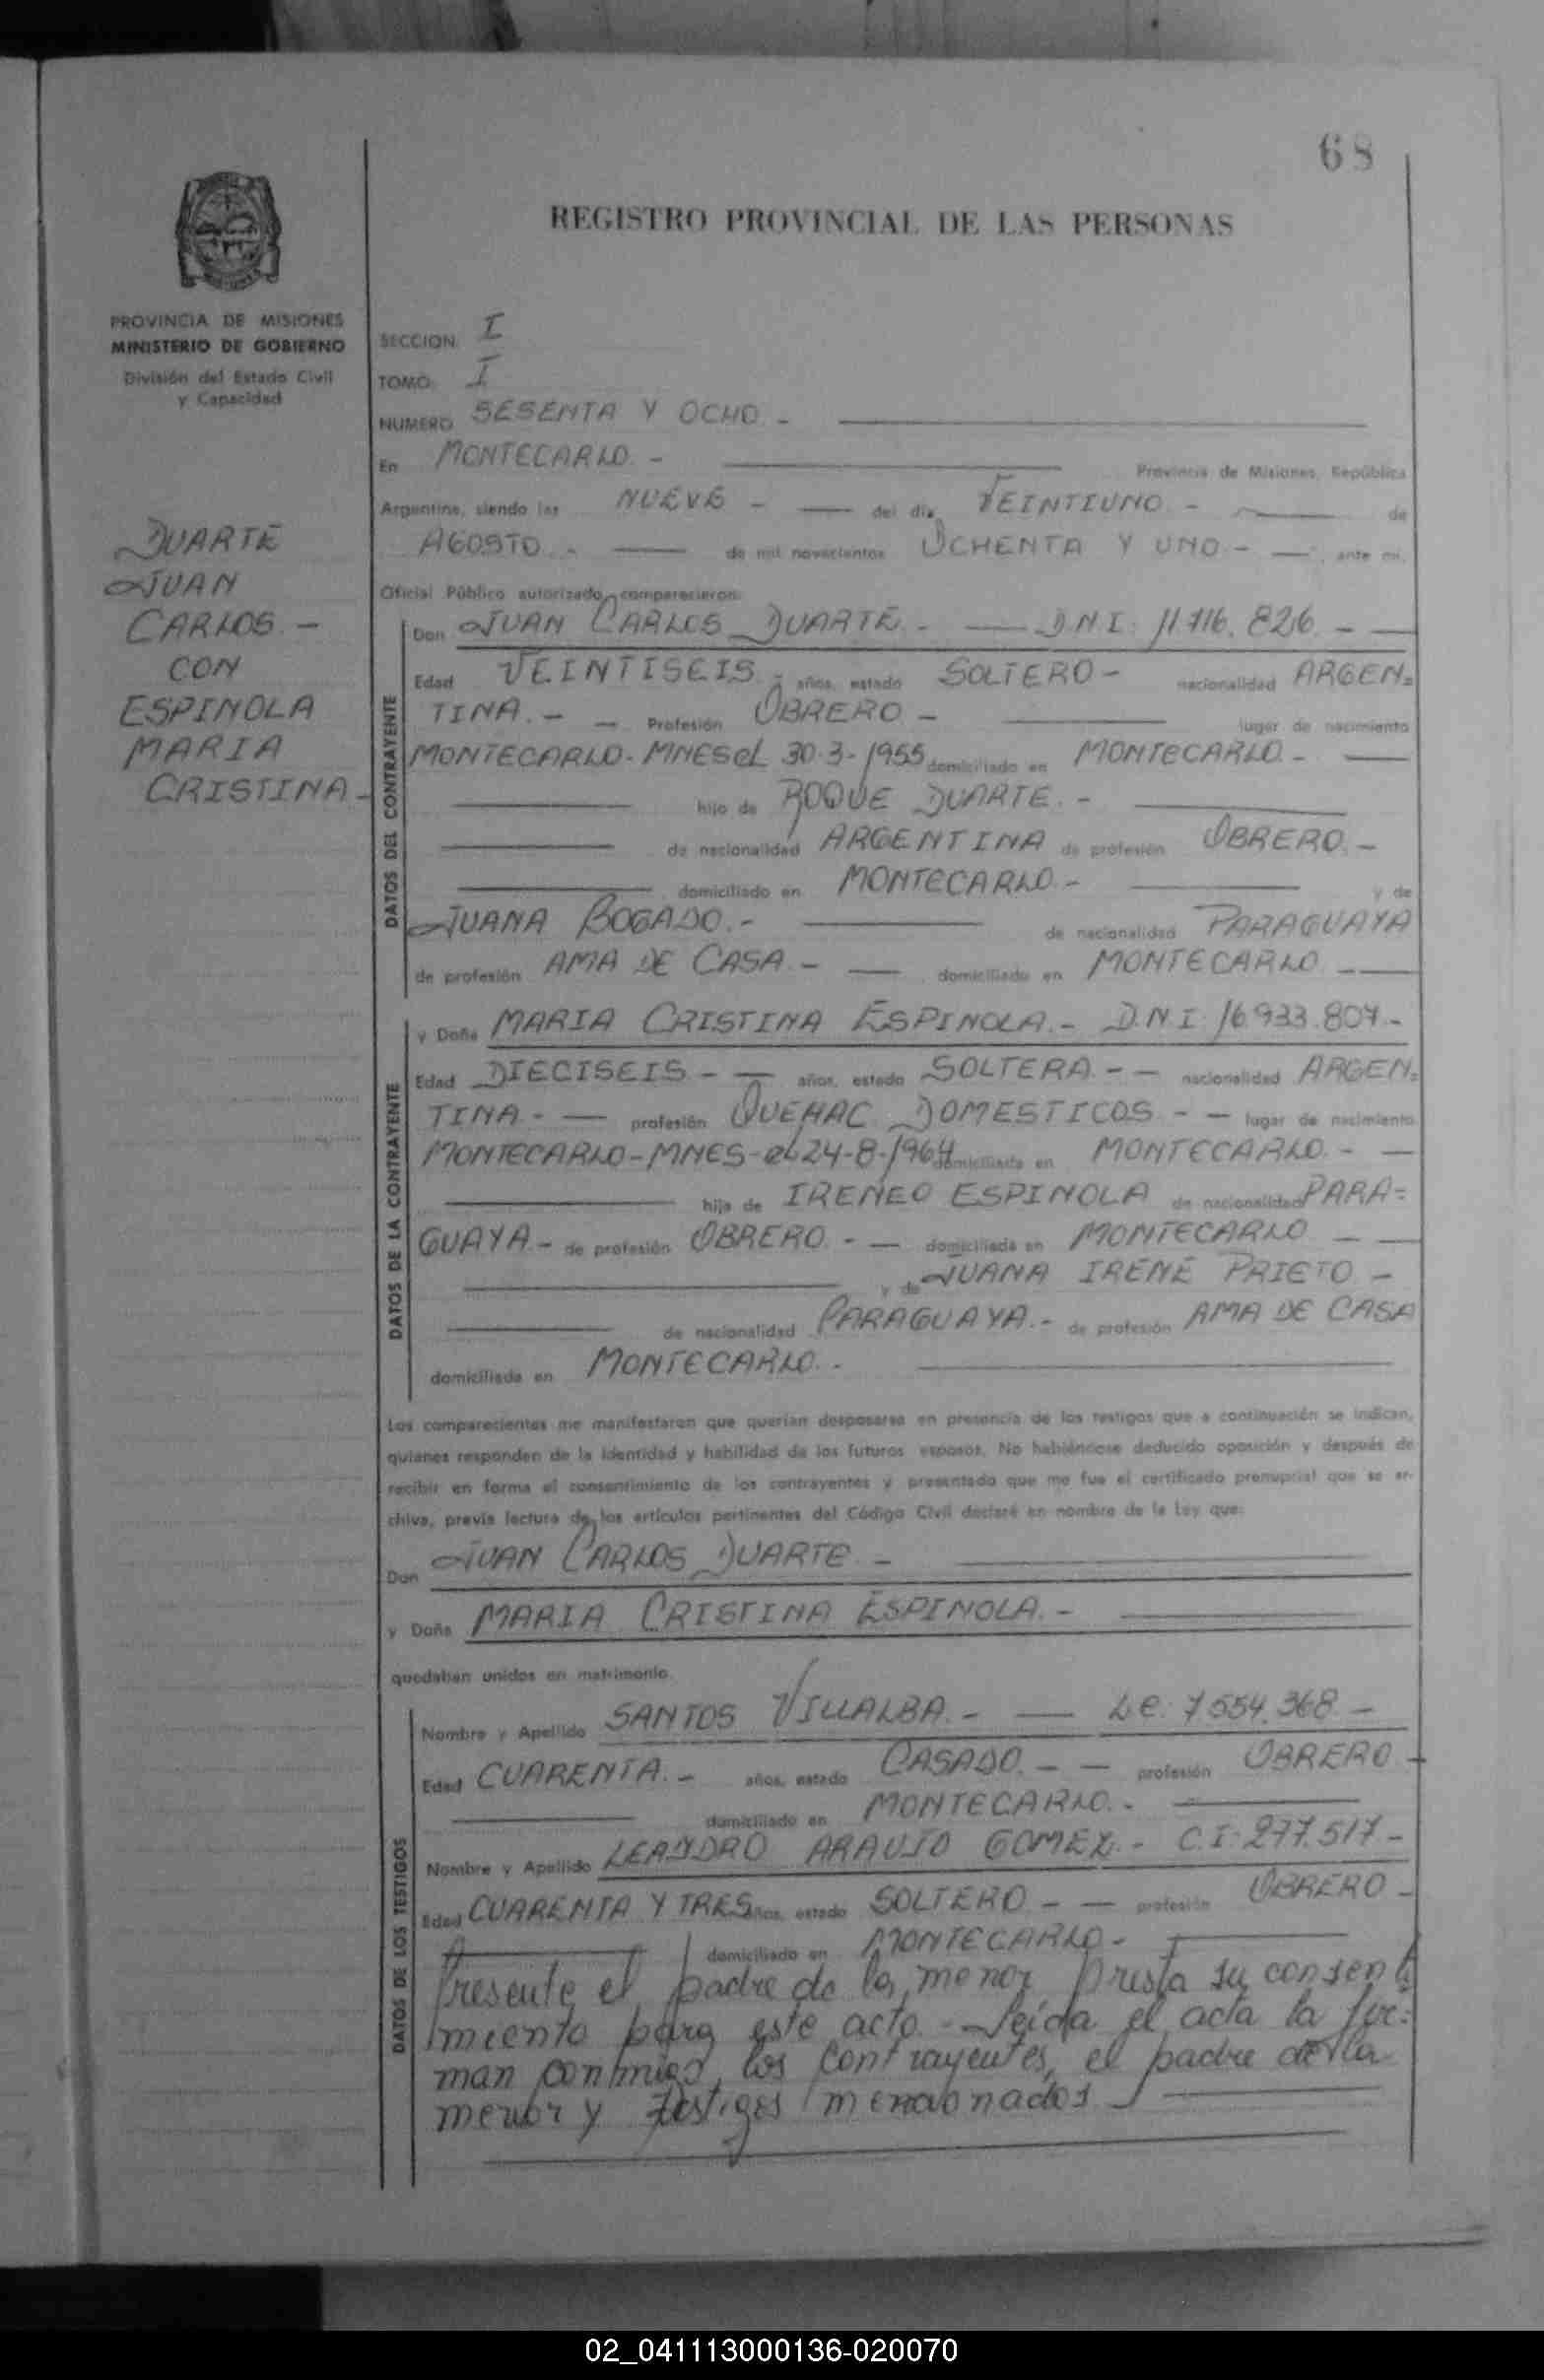 68
REGISTRO PROVINCIAL DE LAS PERSONAS
PROVINCIA DE MISIONES
MINISTERIO DE GOBIERNO
División del Estado Civil
y Capacidad
DUARTE
JUAN
CARLOS.-
CON
ESPINOLA
MARIA
CRISTINA-
SECCION I
TOMO: I
NUMERO SESENTA Y OCHO.-
En MONTECARLO.- Provincia de Misiones, República
Argentina, siendo las NUEVE - del día VEINTIUNO.- de
AGOSTO.- de mil novecientos OCHENTA Y UNO.- ante mí,
Oficial Público autorizado, comparecieron:
DATOS DEL CONTRAYENTE
Don JUAN CARLOS DUARTE.- D.N.I. 11.716.826.-
Edad VEINTISEIS.- años, estado SOLTERO- nacionalidad ARGEN=
TINA.- Profesión OBRERO.- lugar de nacimiento
MONTECARLO-MNES el 30-3-1955 domiciliado en MONTECARLO.-
hijo de ROQUE DUARTE.-
de nacionalidad ARGENTINA de profesión OBRERO.-
domiciliado en MONTECARLO.- y de
JUANA BOGADO.- de nacionalidad PARAGUAYA
de profesión AMA DE CASA.- domiciliada en MONTECARLO
DATOS DE LA CONTRAYENTE
y Doña MARIA CRISTINA ESPINOLA.- D.N.I 16.933.807-
Edad DIECISEIS-- años, estado SOLTERA.-- nacionalidad ARGEN=
TINA.- profesión QUEHAC DOMESTICOS.-- lugar de nacimiento
MONTECARLO-MNES-el 24-8-1964 domiciliada en MONTECARLO.-
hija de IRENEO ESPINOLA de nacionalidad PARA=
GUAYA.- de profesión OBRERO.- domiciliado en MONTECARLO
y de JUANA IRENE PRIETO-
de nacionalidad PARAGUAYA.- de profesión AMA DE CASA
domiciliada en MONTECARLO.-
Los comparecientes me manifestaron que querían desposarse en presencia de los testigos que a continuación se indican,
quienes responden de la identidad y habilidad de los futuros esposos. No habiéndose deducido oposición y después de
recibir en forma el consentimiento de los contrayentes y presentado que me fue el certificado prenupcial que se ar-
chiva, previa lectura de los artículos pertinentes del Código Civil declaré en nombre de la Ley que:
Don JUAN CARLOS DUARTE.-
y Doña MARIA CRISTINA ESPINOLA.-
quedaban unidos en matrimonio.
DATOS DE LOS TESTIGOS
Nombre y Apellido SANTOS VILLALBA.- L.E. 7.554.368-
Edad CUARENTA.- años, estado CASADO.-- profesión OBRERO-
domiciliado en MONTECARLO.-
Nombre y Apellido LEANDRO ARAUJO GOMEZ.- C.I: 277.517-
Edad CUARENTA Y TRES años, estado SOLTERO-- profesión OBRERO-
domiciliado en MONTECARLO-
Presente el padre de la menor presta su consenti
miento para este acto.-Leída el acta la fir=
man conmigo, los contrayentes, el padre de la
menor y testigos mencionados
02_041113000136-020070